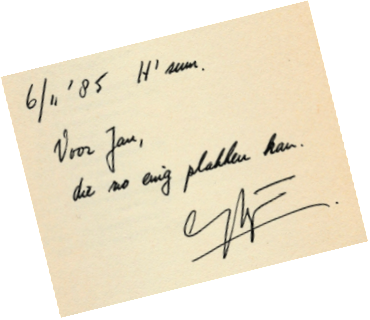 6/11 '85 H'sum.
Voor Jan,
die zo enig plakken kan.